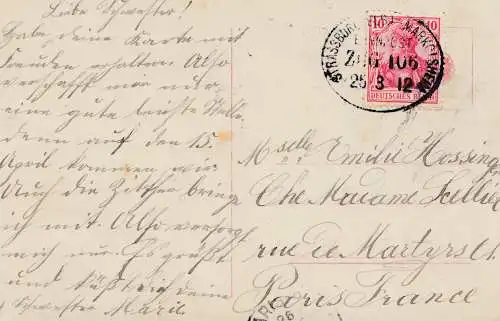 Liebe Schwester!
Habe deine Karte mit
Freuden erhalten. Also
verschafft mir nur
eine gute leichte Stelle
denn auf den 15.
April kommen wir.
Auch die Zither bringe
ich mit. Also versorgt
mich nur. Es grüßt
und küßt dich deine
Schwester Marie.
STRASSBURG
ZUG 106
25 3 12
10 10
DEUTSCHES REICH
Mselle Emilie Hossing
Che Madame
rue De Martyrs 21
Paris France
26